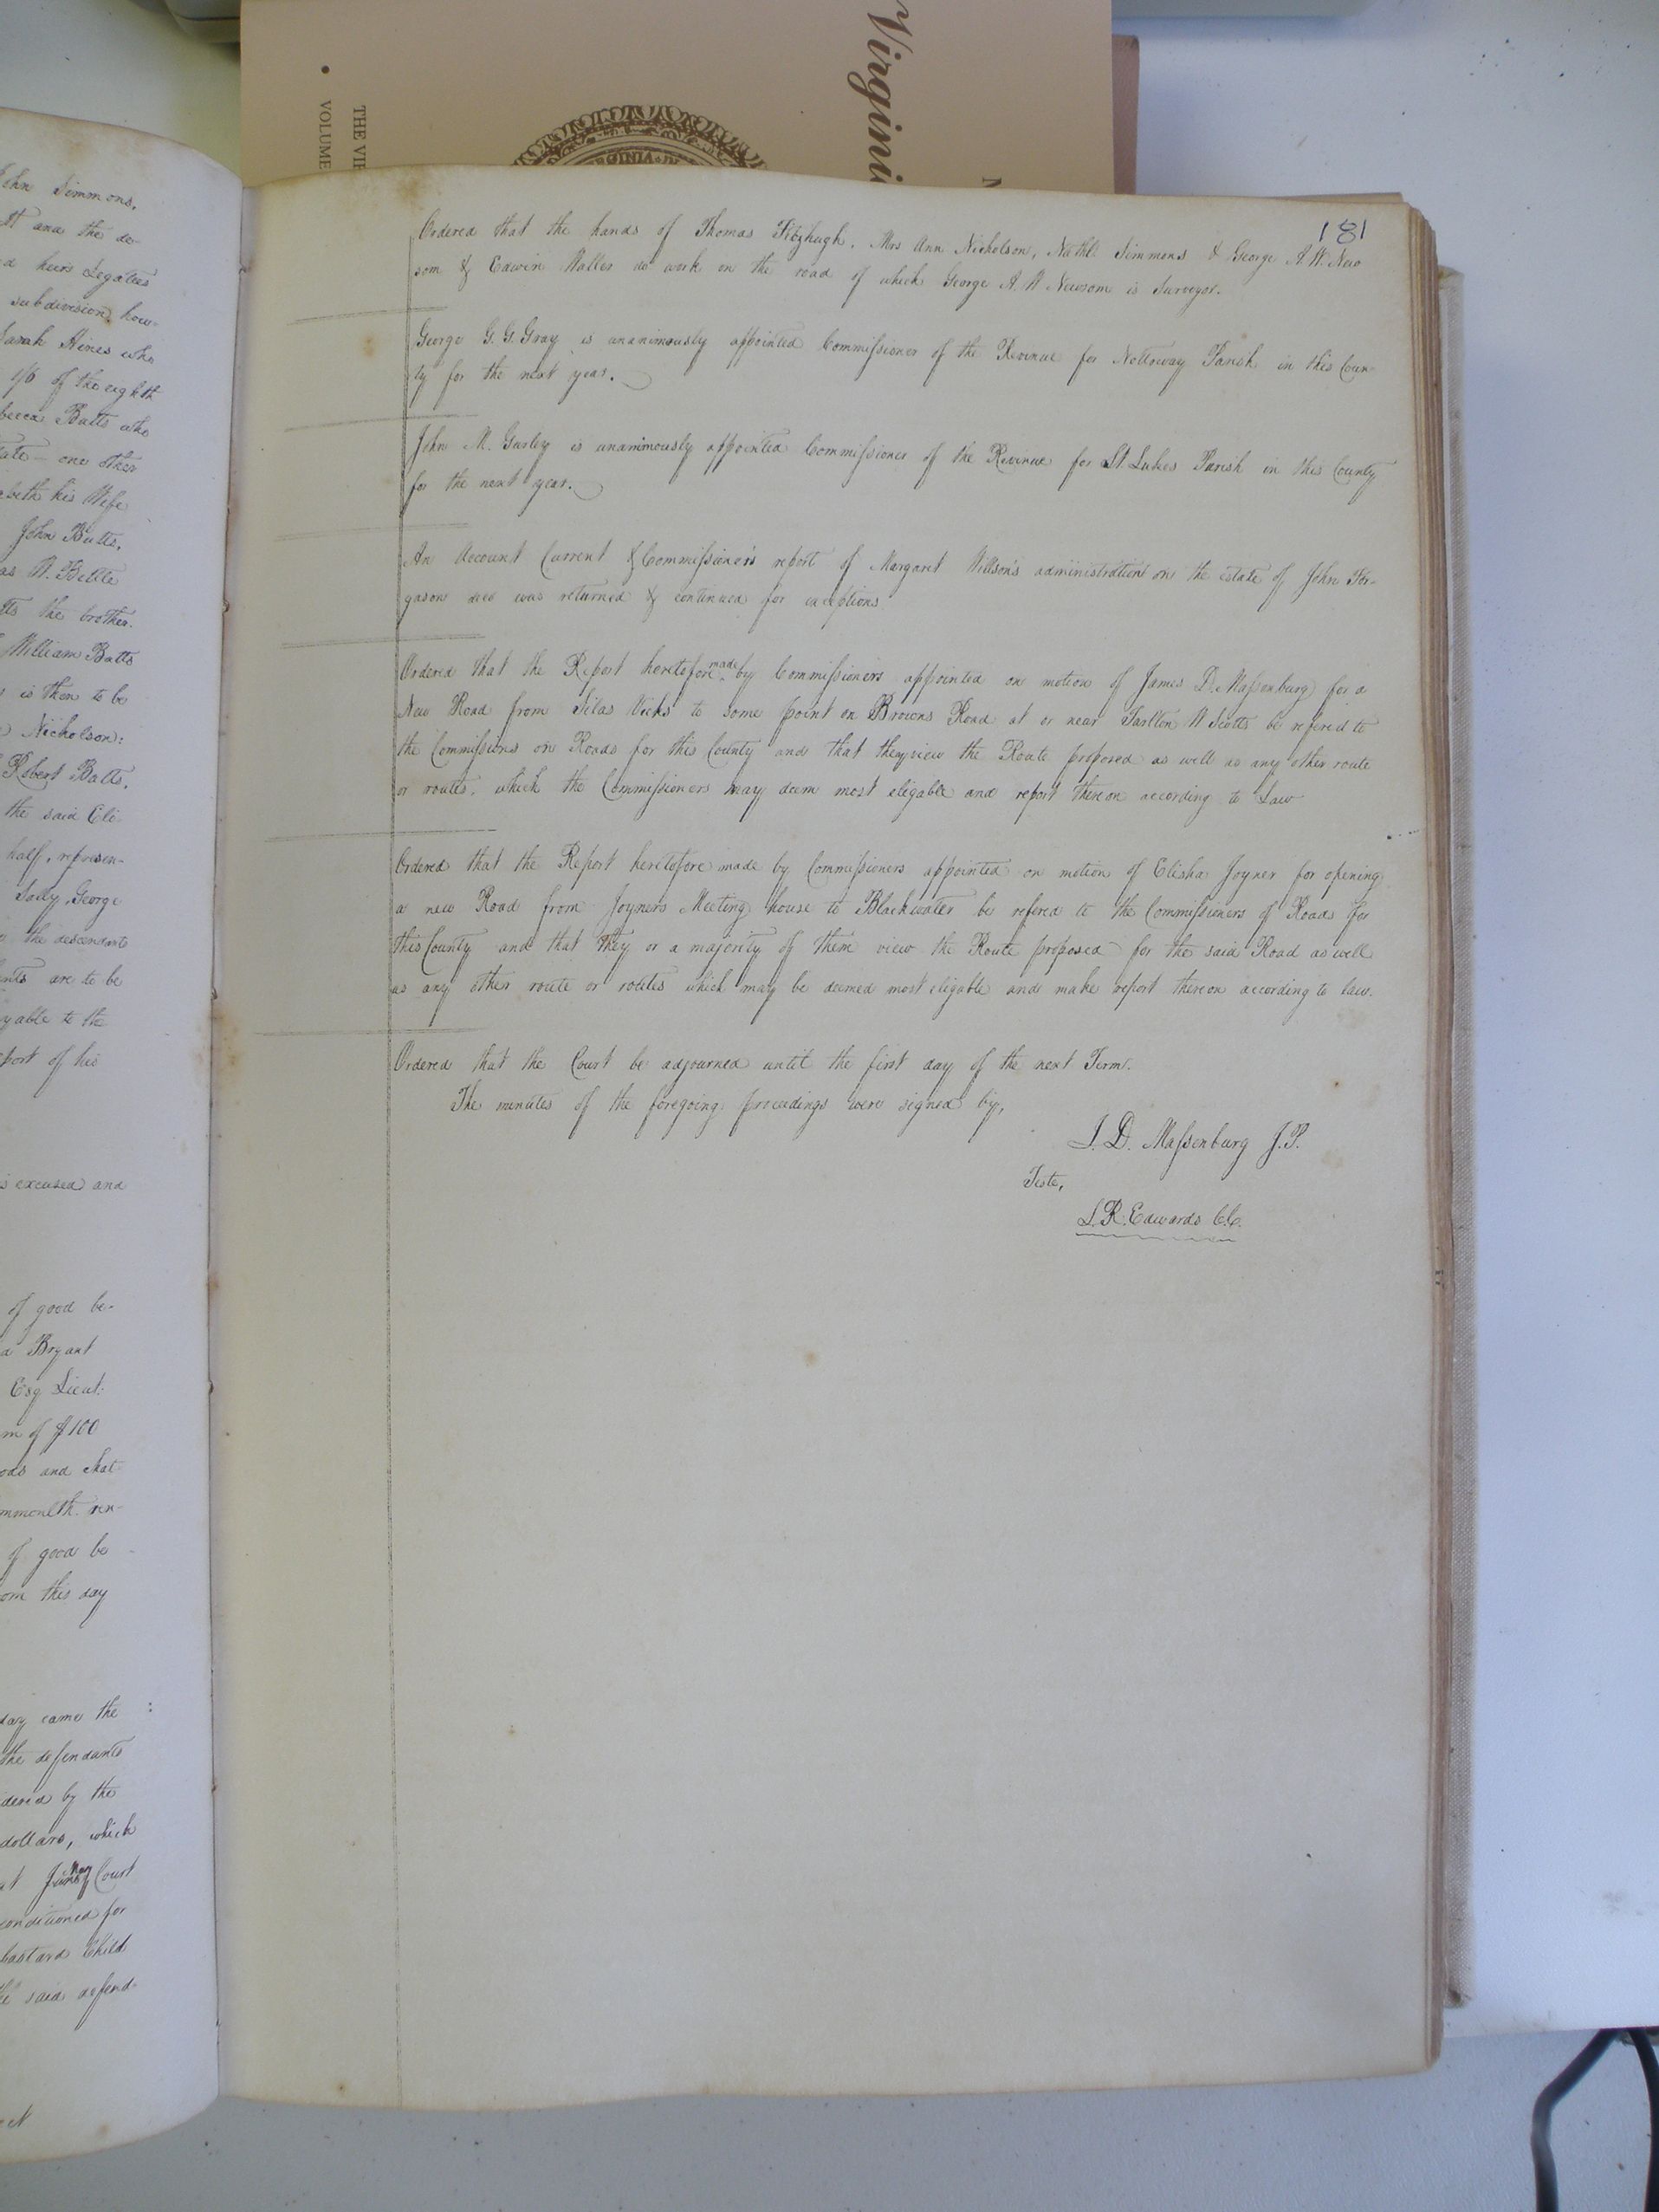 Virgini
THE VIR
VOLUME
RGINIA
N
John Simmons,
tt and the de-
d heirs Legatees
subdivision, how-
Sarah Hines who
1/6 of the eighth
becca Batts who
tate - one other
abeth his Wife
John Batts,
as W. Battle
tts the brother
William Batts
is then to be
Nicholson:
Robert Batts,
the said Eli-
half, represen-
Sally, George
the descendants
ants are to be
yable to the
port of his
is excused and
of good be-
a Bryant
Esq Lieut:
m of $100
ods and chat-
mmonlth. ren-
of good be-
om this day
day came the
the defendants
dered by the
dollars, which
at June May Court
conditioned for
bastard Child
the said defend-
181
Ordered that the hands of Thomas Fitzhugh, Mrs Ann Nicholson, Nathl. Simmons & George A. W. New
som & Edwin Waller do work on the road of which George A. W Newsom is Surveyor.
George G. G. Gray is unanimously appointed Commissioner of the Revenue for Nottoway Parish in this Coun-
ty for the next year.
John M. Gurley is unanimously appointed Commissioner of the Revenue for St. Lukes Parish in this County
for the next year.
An Account Current & Commissioner's report of Margaret Willson's administration on the estate of John Fer-
gason decd was returned & continued for exceptions
Ordered that the Report heretofore made by Commissioners appointed on motion of James D. Massenburg for a
New Road from Silas Vicks to some point on Browns Road at or near Tarlton W Scotts be refered to
the Commissions on Roads for this County and that they view the Route proposed as well as any other route
or routes, which the Commissioners may deem most eligable and report thereon according to Law
Ordered that the Report heretofore made by Commissioners appointed on motion of Elisha Joyner for opening
a new Road from Joyners Meeting house to Blackwater be refered to the Commissioners of Roads for
this County and that they or a majority of them view the Route proposed for the said Road as well
as any other route or routes which may be deemed most eligable and make report thereon according to law.
Ordered that the Court be adjourned until the first day of the next Term.
The minutes of the foregoing proceedings were signed by,
J. D. Massenburg J.P.
Teste,
L. R. Edwards C.C.